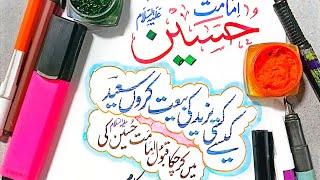 امامت
حسین علیہ السلام
کیسے کسی یزید کی بیعت کروں سعید
میں کر چکا قبول امامت حسین کی